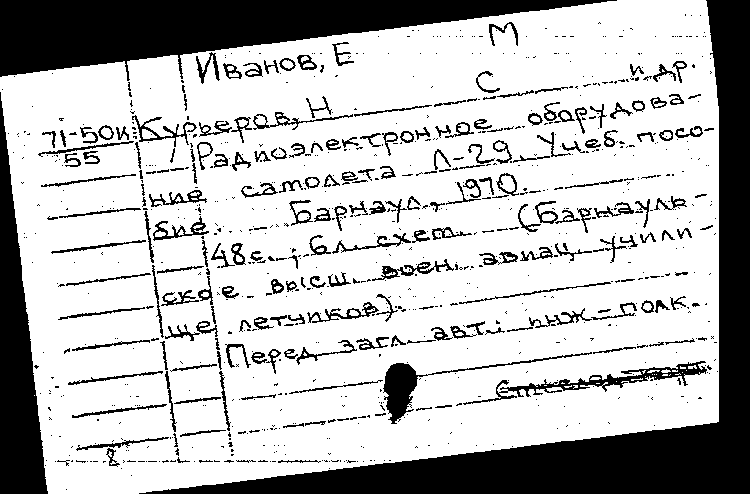 Иванов, Е М
71-50к Курьеров, Н С и др.
55 Радиоэлектронное оборудова-
ние самолета Л-29. Учеб. посо-
бие. Барнаул, 1970.
48с.; 6л. схем. (Барнауль-
ское высш. воен. авиац. учили-
ще летчиков).
Перед загл. авт.: инж-полк.
8